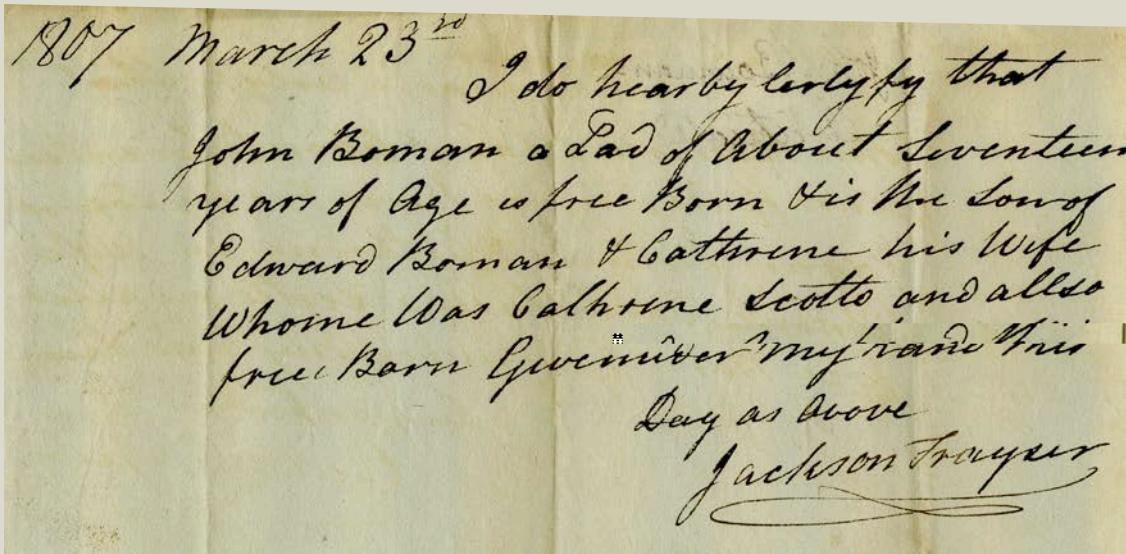 1807 March 23rd
I do hearby certyfy that
John Boman a Lad of About Seventeen
years of Age is free Born & is the Son of
Edward Boman & Cathrene his Wife
Whome Was Cathrene Scotto and allso
free Born Given under my hand this
Day as above
Jackson Frayser